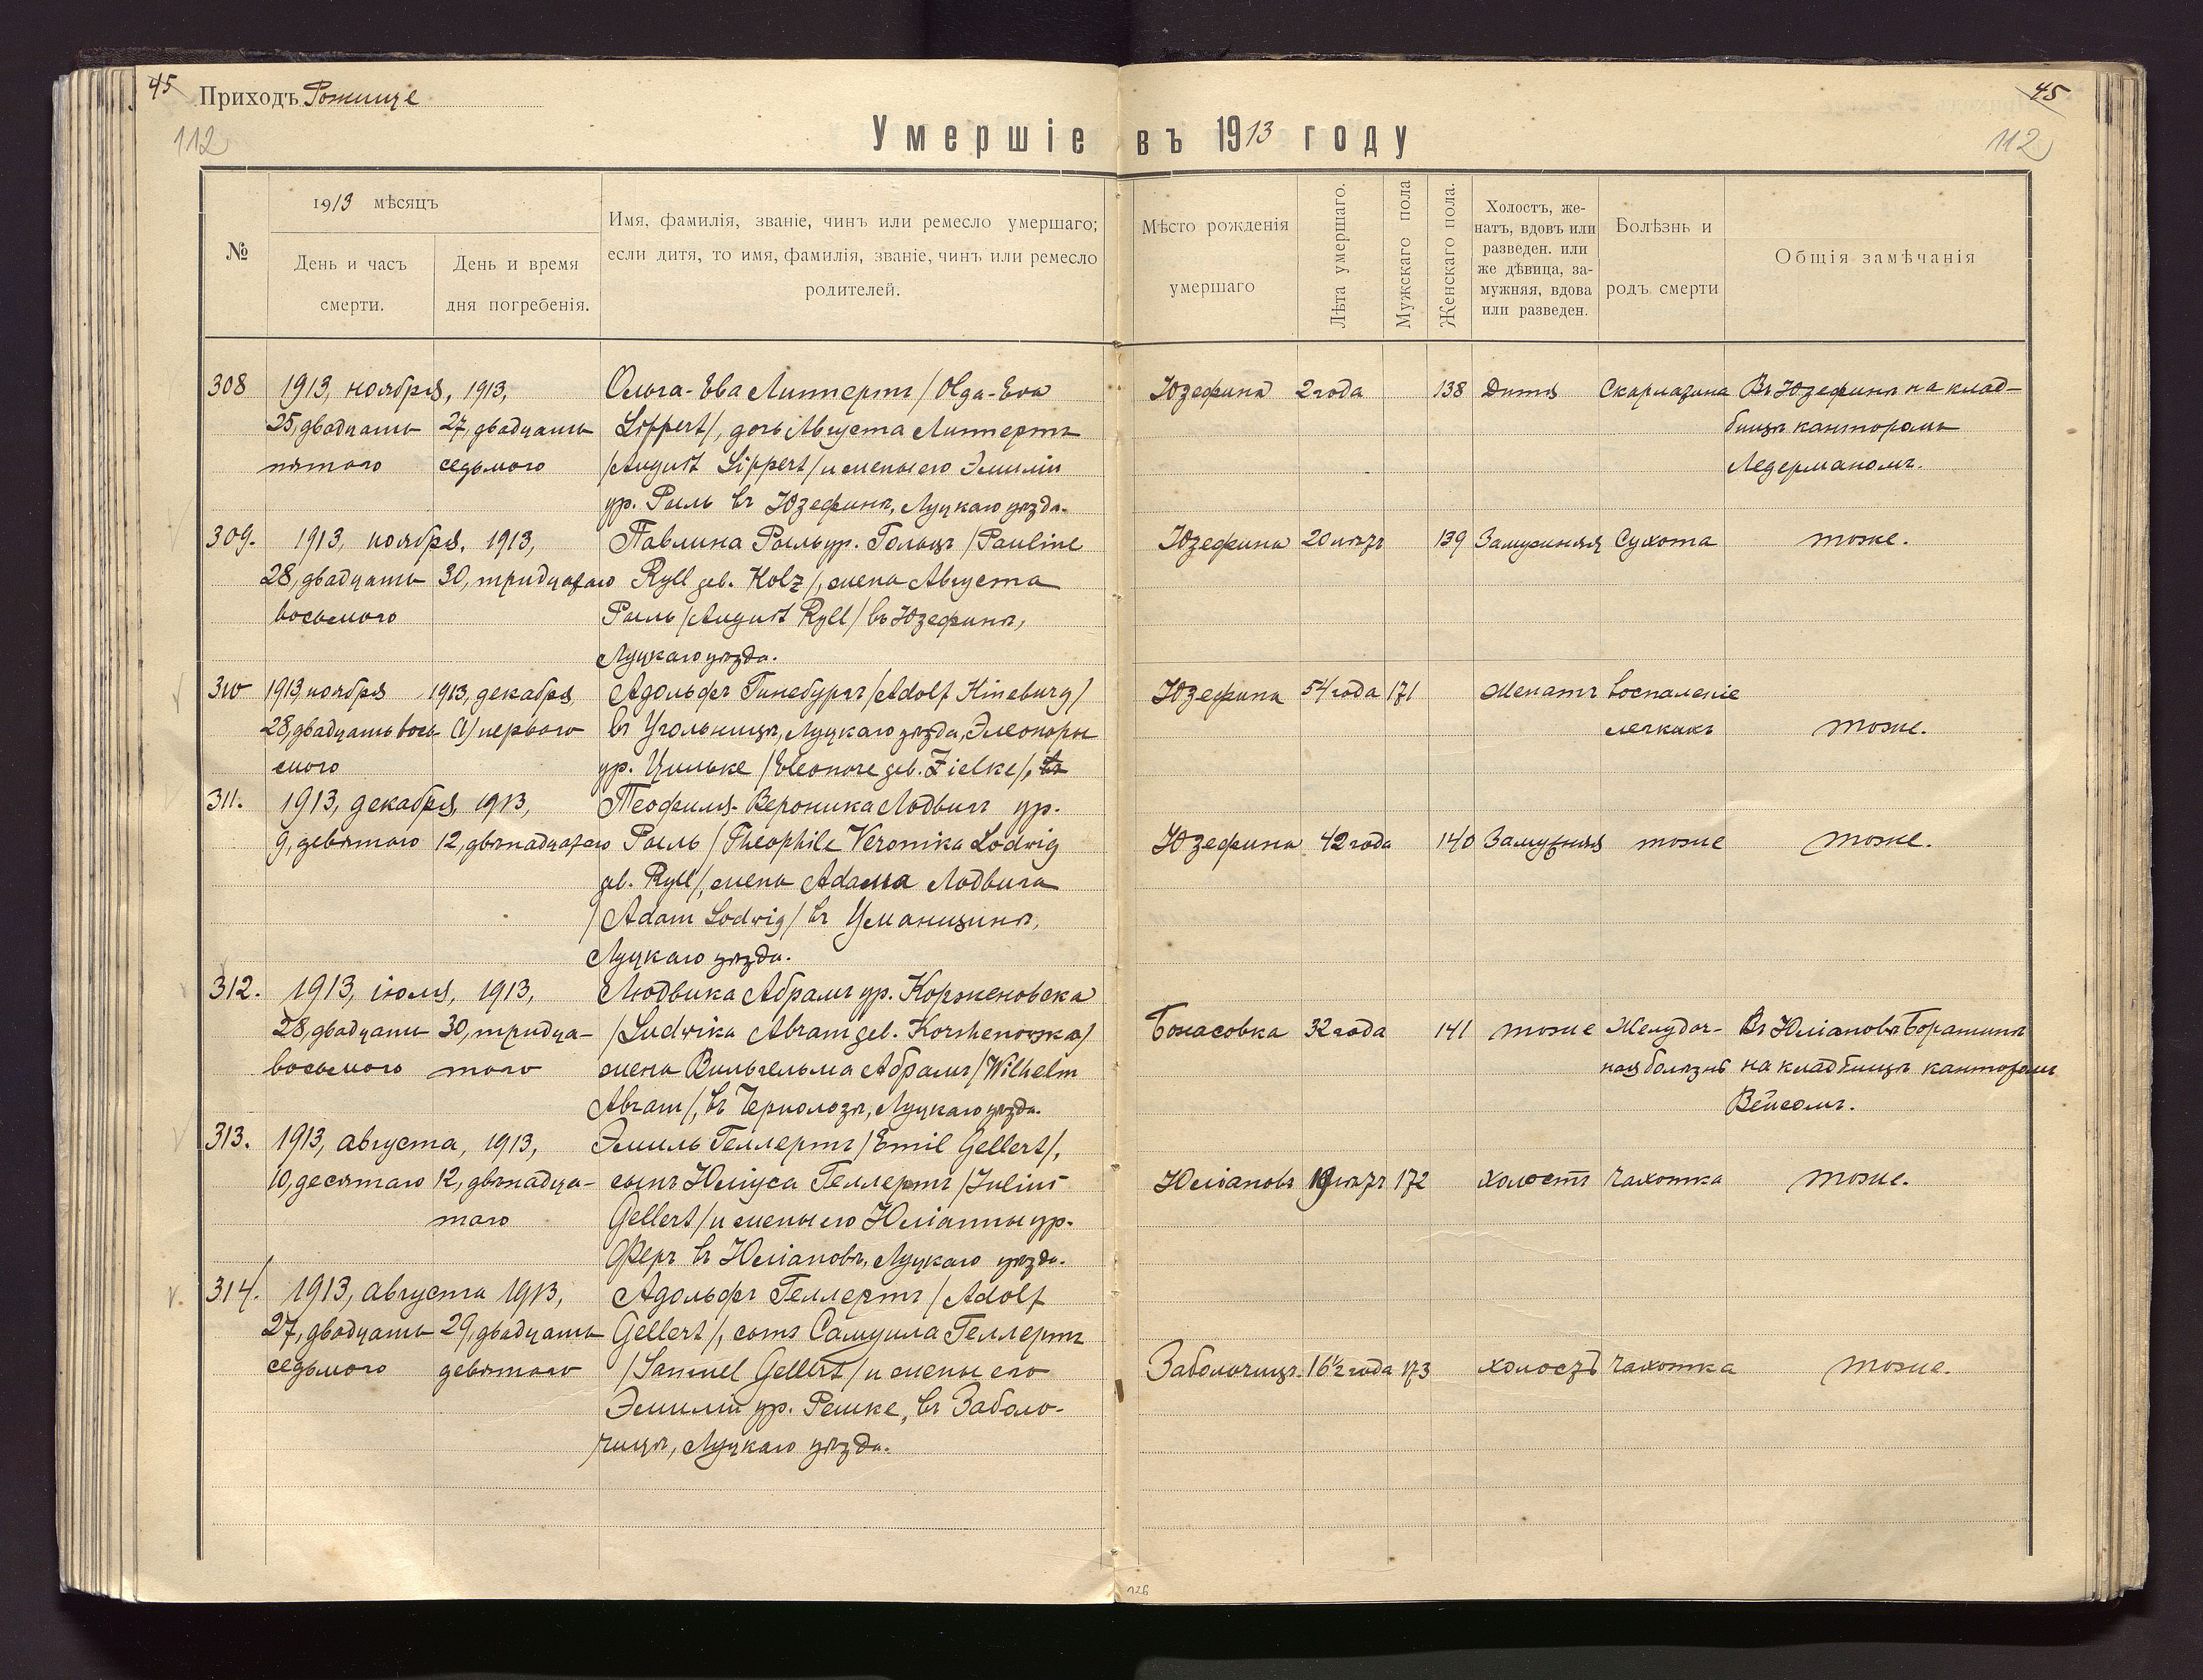 45
Приходъ Рожище
45
112
112
Умершіе въ 1913 году
№
1913 мѣсяцъ
День и часъ
смерти.
День и время
дня погребенія.
Имя, фамилія, званіе, чинъ или ремесло умершаго;
если дитя, то имя, фамилія, званіе, чинъ или ремесло
родителей.
Мѣсто рожденія
умершаго
Лѣта умершаго.
Мужскаго пола
Женскаго пола.
Холостъ, же-
натъ, вдовъ или
разведен. или
же дѣвица, за-
мужняя, вдова
или разведен.
Болѣзнь и
родъ смерти
Общія замѣчанія
308 1913, ноября, 1913, Ольга-Ева Липпертъ /Olga-Eva Юзефина 2 года 138 Дитя Скарлатина Въ Юзефинѣ на клад-
25, двадцать 27, двадцать Lippert/, дочь Августа Липпертъ бищѣ канторомъ
пятого седьмого /August Lippert/ и жены его Эмиліи Ледерманомъ.
ур. Рыль въ Юзефинѣ, Луцкаго уѣзда.
309. 1913, ноября, 1913, Павлина Рыль ур. Гольцъ /Pauline Юзефина 20 лѣтъ 139 Замужняя Сухота тоже.
28, двадцать 30, тридцатаго Ryll geb. Holz/, жена Августа
восьмого Рыль /August Ryll/ въ Юзефинѣ,
Луцкаго уѣзда.
310 1913 ноября 1913, декабря, Адольфъ Гинебургъ /Adolf Hineburg/ Юзефина 54 года 171 Женатъ воспаленіе
28, двадцать вось- (1) перваго въ Угольницѣ, Луцкаго уѣзда, Элеоноры легкихъ тоже.
мого ур. Цильке /Eleonore geb. Zielke/,
311. 1913, декабря, 1913, Теофиля-Вероника Лодвигъ ур.
9, девятаго 12, двѣнадцатаго Рыль /Theophile Veronika Lodwig Юзефина 42 года 140 Замужняя тоже тоже.
geb. Ryll/, жена Адама Лодвига
/Adam Lodwig/ въ Уманщинѣ,
Луцкаго уѣзда.
312. 1913, іюля, 1913, Людвика Абрамъ ур. Корженовска
28, двадцать 30, тридца- /Ludwika Abram geb. Korshenowska/ Божасовка 32 года 141 тоже Желудоч- Въ Юліановѣ Боратинѣ
восьмого таго жена Вильгельма Абрамъ /Wilhelm ная болѣзнь на кладбищѣ канторомъ
Abram/, въ Чернолозѣ, Луцкаго уѣзда. Вейсомъ.
313. 1913, августа, 1913, Эмиль Геллертъ /Emil Gellert/,
10, десятаго 12, двѣнадца- сынъ Юліуса Геллертъ /Julius Юліановъ лѣтъ 172 холостъ чахотка тоже.
таго Gellert/ и жены его Юліанны ур.
Феръ въ Юліановѣ, Луцкаго уѣзда.
314. 1913, августа 1913, Адольфъ Геллертъ /Adolf
27, двадцать 29, двадцать Gellert/, сынъ Самуила Геллертъ
седьмого девятаго /Samuel Gellert/ и жены его Заболочицѣ 16½ года 173 холостъ чахотка тоже.
Эмиліи ур. Решке, въ Заболо-
чицѣ, Луцкаго уѣзда.
126